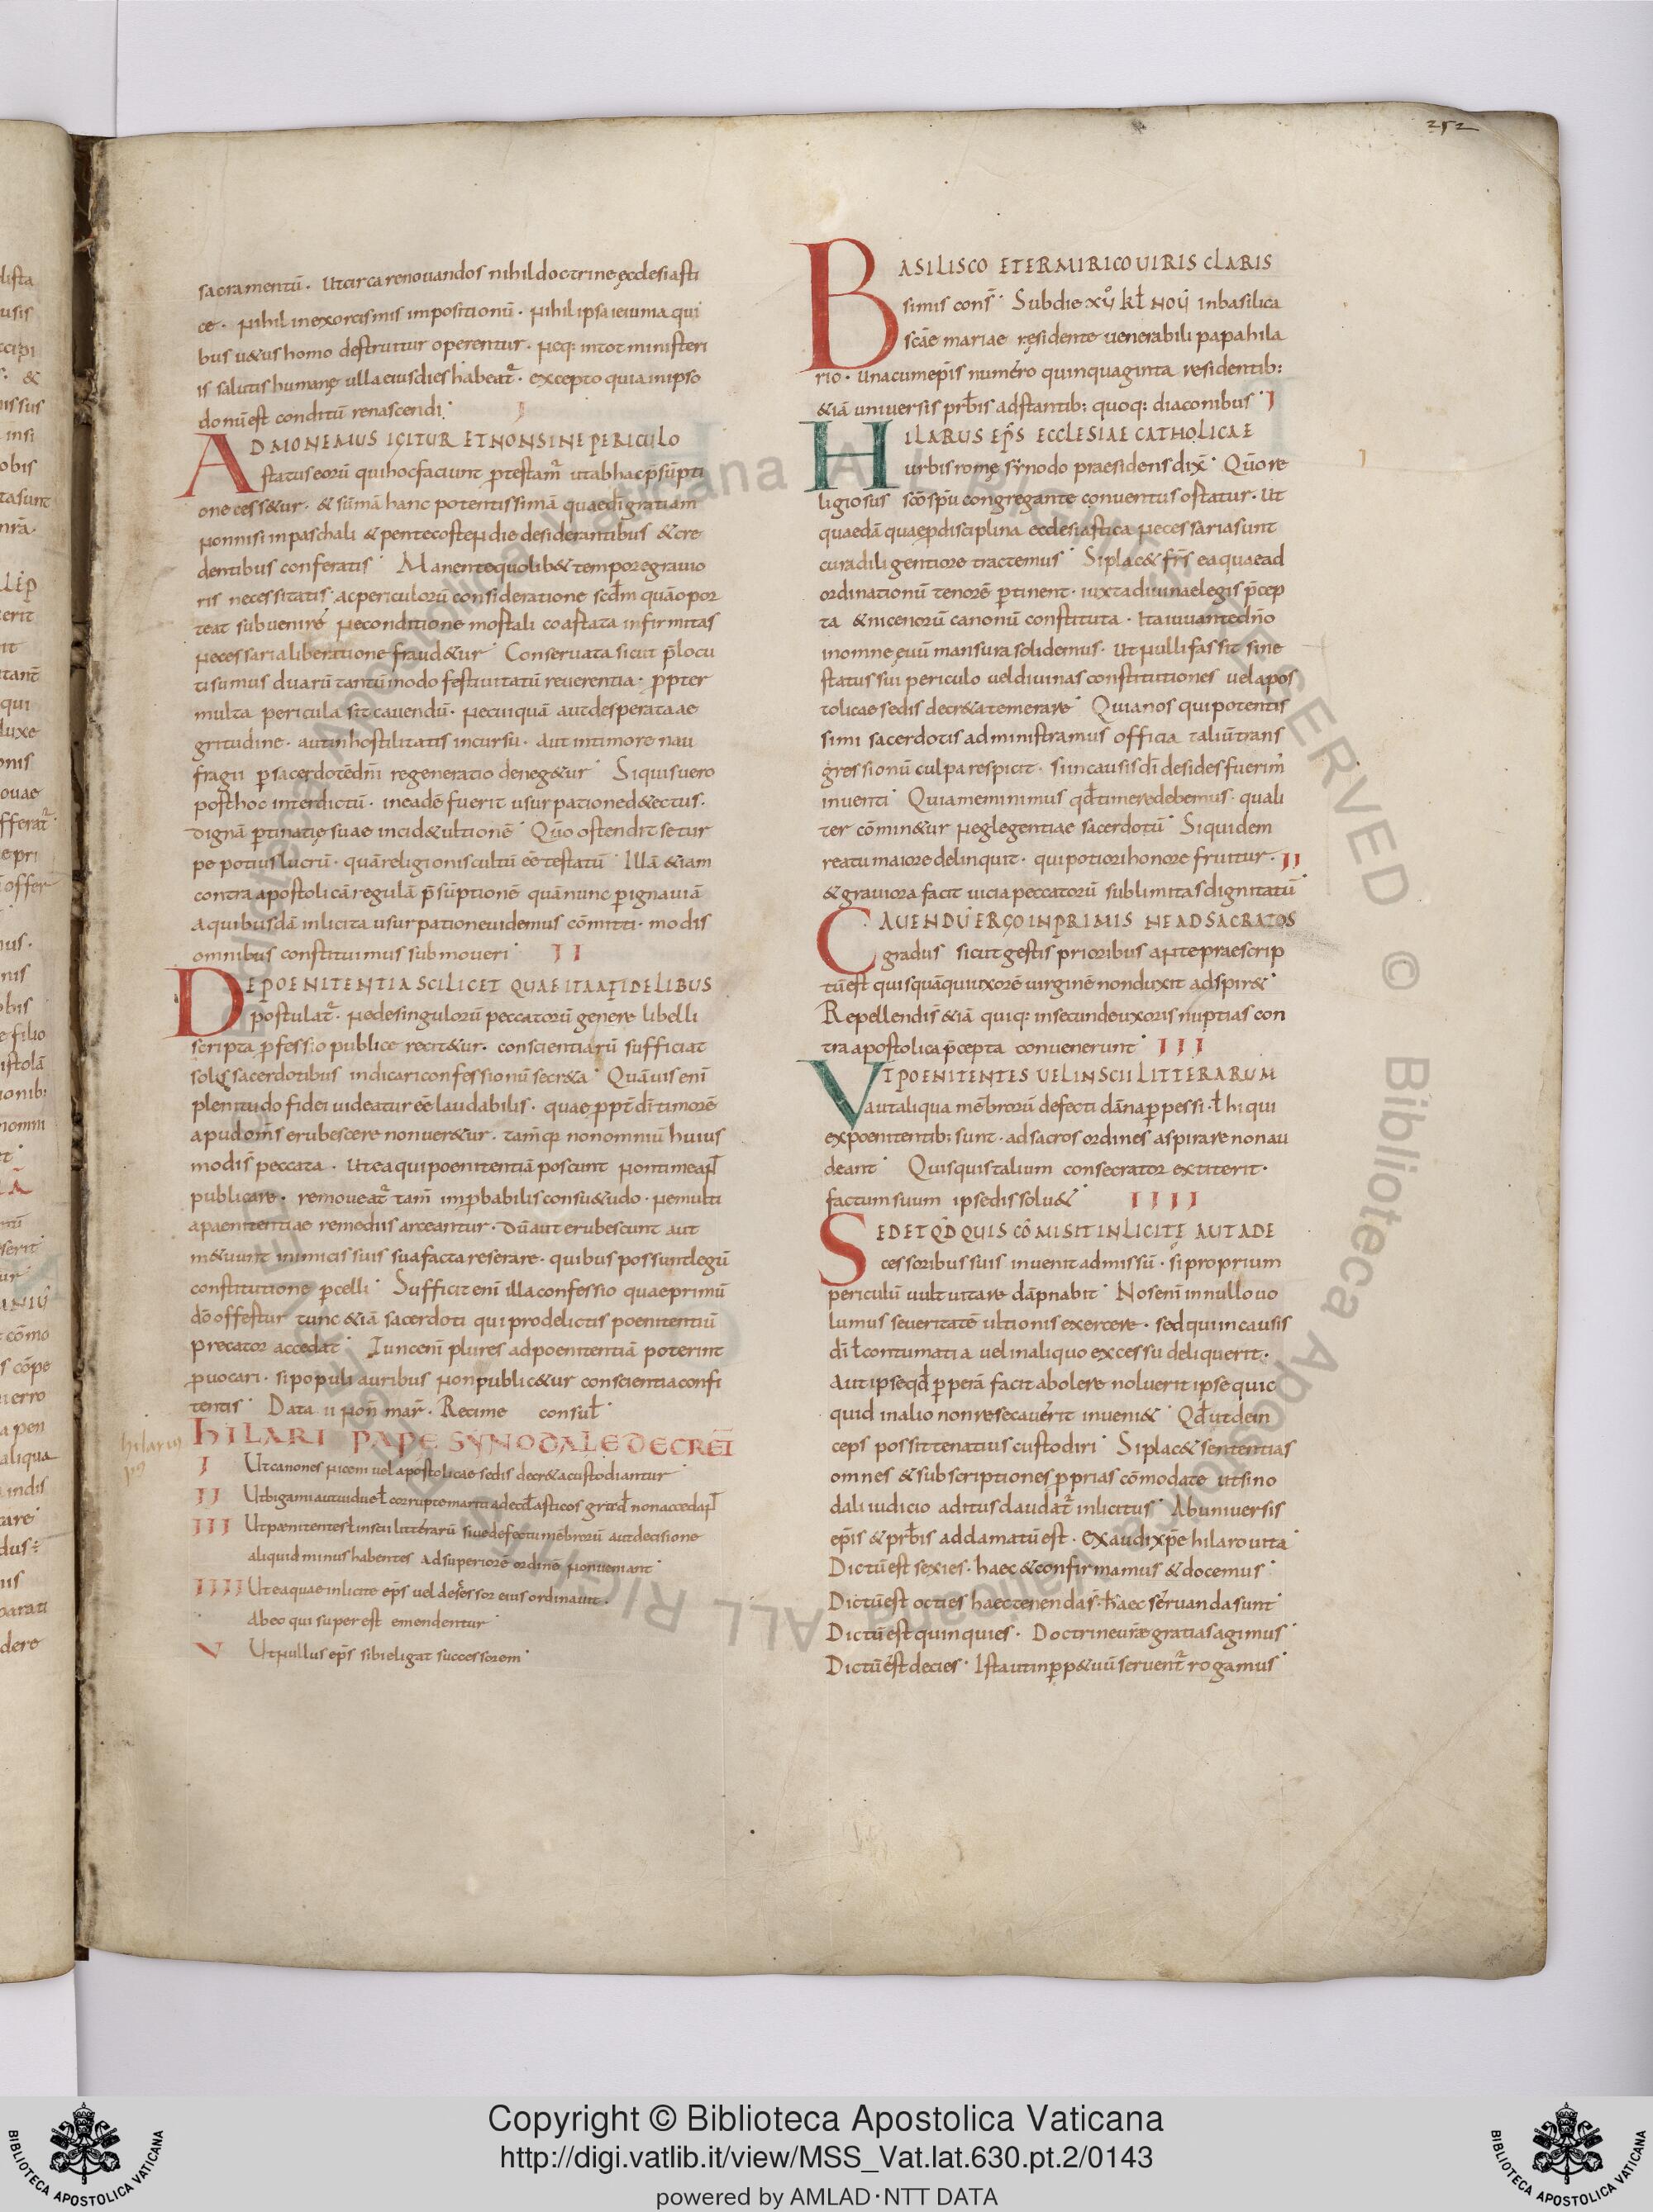 252
sacramentū. Ut circa renouandos nihil doctrine ecclesiasti
ce. Nihil in exorcismis impositionū. Nihil ipsa ieiunia qui
bus u&us homo destruitur operentur. Neq: in tot ministeri
is salutis humanę ulla eius dies habeat̃. excepto quia in ipso
donū est conditū renascendi. I
ADMONEMUS IGITUR ET NON SINE PERICULO
status eorū qui hoc faciunt p̄testam̃ ut ab hac p̄sūpti
one cess&ur. & sūmā hanc potentissimā quae d̄i gratiam
Non nisi in paschali & pentecosten die desiderantibus & cre
dentibus conferatis. Manente quolib& tempore grauio
ris necessitatis. ac periculorū consideratione scd̄m quā opor
teat subuenire ne conditione mostali coastata infirmitas
Necessaria liberatione fraud&ur. Conseruata sicut p̄locu
ti sumus duarū tantū modo festiuitatū reuerentia. ppter
multa pericula sit cauendū. Ne cuiquā aut desperata ae
gritudine. aut in hostilitatis incursu. aut in timore nau
fragii p sacerdotē dn̄i regeneratio deneg&ur. Si quis uero
post hoc interdictū. in eadē fuerit usurpatione d&ectus.
Dignā ptinatię suae incid& ultionē. Quō ostendit se tur
pe potius lucrū. quā religionis cultū eē testatū. Illā &iam
contra apostolicā regulā p̄sūptionē quā nunc p ignauiā
a quibusdā inlicita usurpatione uidemus cōmitti. modis
omnibus constituimus submoueri. II
DE POENITENTIA SCILICET QUAE ITA A FIDELIBUS
postulat̃. Ne de singulorū peccatorū genere libelli
scripta pfessio publice recit&ur. conscientiarū sufficiat
solis sacerdotibus indicari confessionū secr&a. Quāuis enī
plenitudo fidei uideatur eē laudabilis. quae ppt̄ dī timorē
apud om̄s erubescere non uer&ur. tam̄ q̄ non omniū huius
modi s̄ peccata. Ut ea qui poenitentiā poscunt Non timeaņ̄
publicare. remoueat̃ tam̄ imp̄babilis consu&udo. Ne multi
a paenitentiae remediis arceantur. Dū aut erubescunt aut
m&uunt inimicis suis sua facta reserare. quibus possunt legū
constitutione pcelli. Sufficit enī illa confessio quae primū
dō offestur tunc &iā sacerdoti qui pro delictis poenitentiū
precator accedat. Tunc enī plures ad poenitentiā poterint
puocari. si populi auribus Non public&ur conscientia confi
tentis. Data II Non mar̄. Recime consul̄.
HILARI PAPE SYNODALE DECRETĪ
hilarius
pp
I Ut canones niceni uel apostolicae sedis decr&a custodiantur.
II Ut bigami aut uiduel̄ corrupte mariti ad eccl̄asticos grad̄ non accedaņ̄
III Ut pænitentes l̄ inscii litterarū siue defectu mēbrorū aut decisione
aliquid minus habentes Ad superiorē ordinē Non ueniant.
IIII Ut ea quae inlicite ep̄s uel decessor eius ordinauit.
Ab eo qui superest emendentur.
V Ut nullus ep̄s sibi eligat successorem.
BASILISCO ET ERMIRICO UIRIS CLARIS
simis cons̄. Sub die XV kl̄ nou in basilica
scāe mariae residente uenerabili papa hila
rio. una cum ep̄is numero quinquaginta residentib:
&iā uniuersis prb̄is adstantib: quoq: diaconibus. I
HILARUS EP̄S ECCLESIAE CATHOLICAE
urbis romę synodo praesidens dix̄. Quō re
ligiosus scō sp̄u congregante conuentus ostatur. Ut
quaedā quae p disciplina ecclesiastica Necessaria sunt
cura diligentiore tractemus. Si plac& fr̄s ea quae ad
ordinationū tenorē ptinent. iuxta diuinae legis p̄cep
ta & nicenorū canonū constituta. Ita iuuante dn̄o
in omne ęuū mansura solidemus. Ut nulli fas sit sine
status sui periculo uel diuinas constitutiones uel apos
tolicae sedis decr&a temerare. Quia nos qui potentis
simi sacerdotis administramus officia taliū trans
gressionū culpa respicit. si in causis dī desides fuerim̄
inuenti. Quia meminimus qd̄ timere debemus. quali
ter cōmin&ur Neglegentiae sacerdotū. Siquidem
reatu maiore delinquit. qui potiori honore fruitur. II
& grauiora facit uicia peccatorū sublimitas dignitatū.
CAUENDŪ ERGO INPRIMIS NE AD SACRATOS
gradus sicut gestis prioribus Ante praescrip
tū est quisquā qui uxorē uirginē non duxit adspir&.
Repellendis &iā quiq: in secunde uxoris nuptias con
tra apostolica p̄cepta conuenerunt. III
UT POENITENTES UEL INSCII LITTERARUM
aut aliqua mēbrorū defecti dāna ppessi. l̄ hi qui
ex poenitentib: sunt. ad sacros ordines aspirare non au
deant. Quisquis talium consecrator extiterit.
factum suum ipse dissolu&. IIII
SED ET QD̄ QUIS CŌMISIT INLICITE AUT A DE
cessoribus suis inuenit admissū. si proprium
periculū uult uitare dāpnabit. Nos enī in nullo uo
lumus seueritatē ultionis exercere. sed qui in causis
dī l̄ contumatia uel in aliquo excessu deliquerit.
Aut ipse qd̄ pperā facit abolere noluerit ipse quic
quid in alio non resecauerit inueni&. Qd̄ ut dein
ceps possit tenatius custodiri. Si plac& sententias
omnes & subscriptiones pprias cōmodate ut sino
dali iudicio aditus claudat̃ inlicitus. Ab uniuersis
ep̄is & prb̄is addamatū est. Exaudi xp̄e hilaro uita.
Dictū est sexies. haec & confirmamus & docemus.
Dictū est octies haec tenenda s̄. haec seruanda sunt.
Dictū est quinquies. Doctrine ur̄ae gratias agimus.
Dictū est decies. Ista ut in pp&uū seruent̃ rogamus.
Copyright © Biblioteca Apostolica Vaticana
http://digi.vatlib.it/view/MSS_Vat.lat.630.pt.2/0143
powered by AMLAD·NTT DATA
BIBLIOTECA APOSTOLICA VATICANA
BIBLIOTECA APOSTOLICA VATICANA